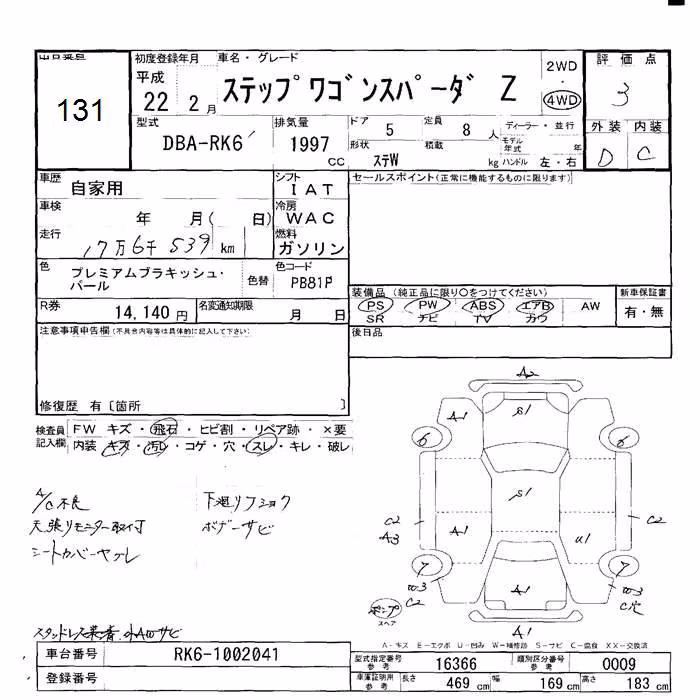 出品番号 初度登録年月 車名・グレード 評価点
131
平成 22 2月 ステップワゴンスパーダ Z 2WD・4WD 3
型式 排気量 ドア 5 定員 8人 ディーラー・並行 外装 内装
DBA-RK6 1997 CC 形状 ステW 積載 kg モデル年式 年 ハンドル 左・右 D C
車歴 自家用 シフト IAT セールスポイント(正常に機能するものに限ります)
車検 年 月( 日) 冷房 WAC
走行 17万6千539 km 燃料 ガソリン
色 プレミアムブラキッシュ・パール 色替 色コード PB81P
装備品 (純正品に限り○をつけてください) 新車保証書
PS PW ABS エアB AW 有・無
SR ナビ TV カワ
R券 14,140円 名変通知期限 月 日
後日品
注意事項申告欄(不具合内容等は具体的に記入して下さい)
修復歴 有〔箇所 〕
検査員記入欄 FW キズ・飛石・ヒビ割・リペア跡・×要
内装・キズ・汚レ・コゲ・穴・スレ・キレ・破レ
A/C不良 下廻リフショク
天張リモニター取付 ボデーサビ
シートカバーヤブレ
A2
A1 S1
6 6
S1
C2 A3 C2
A1 U1
7 7
C2 A1 C穴
スペア
A1
A-キズ E-エクボ U-凹み W-補修跡 S-サビ C-腐食 XX-交換済
車台番号 RK6-1002041
登録番号
型式指定番号 参考 16366 類別区分番号 参考 0009
車庫証明用 参考 長さ 469 cm 幅 169 cm 高さ 183 cm